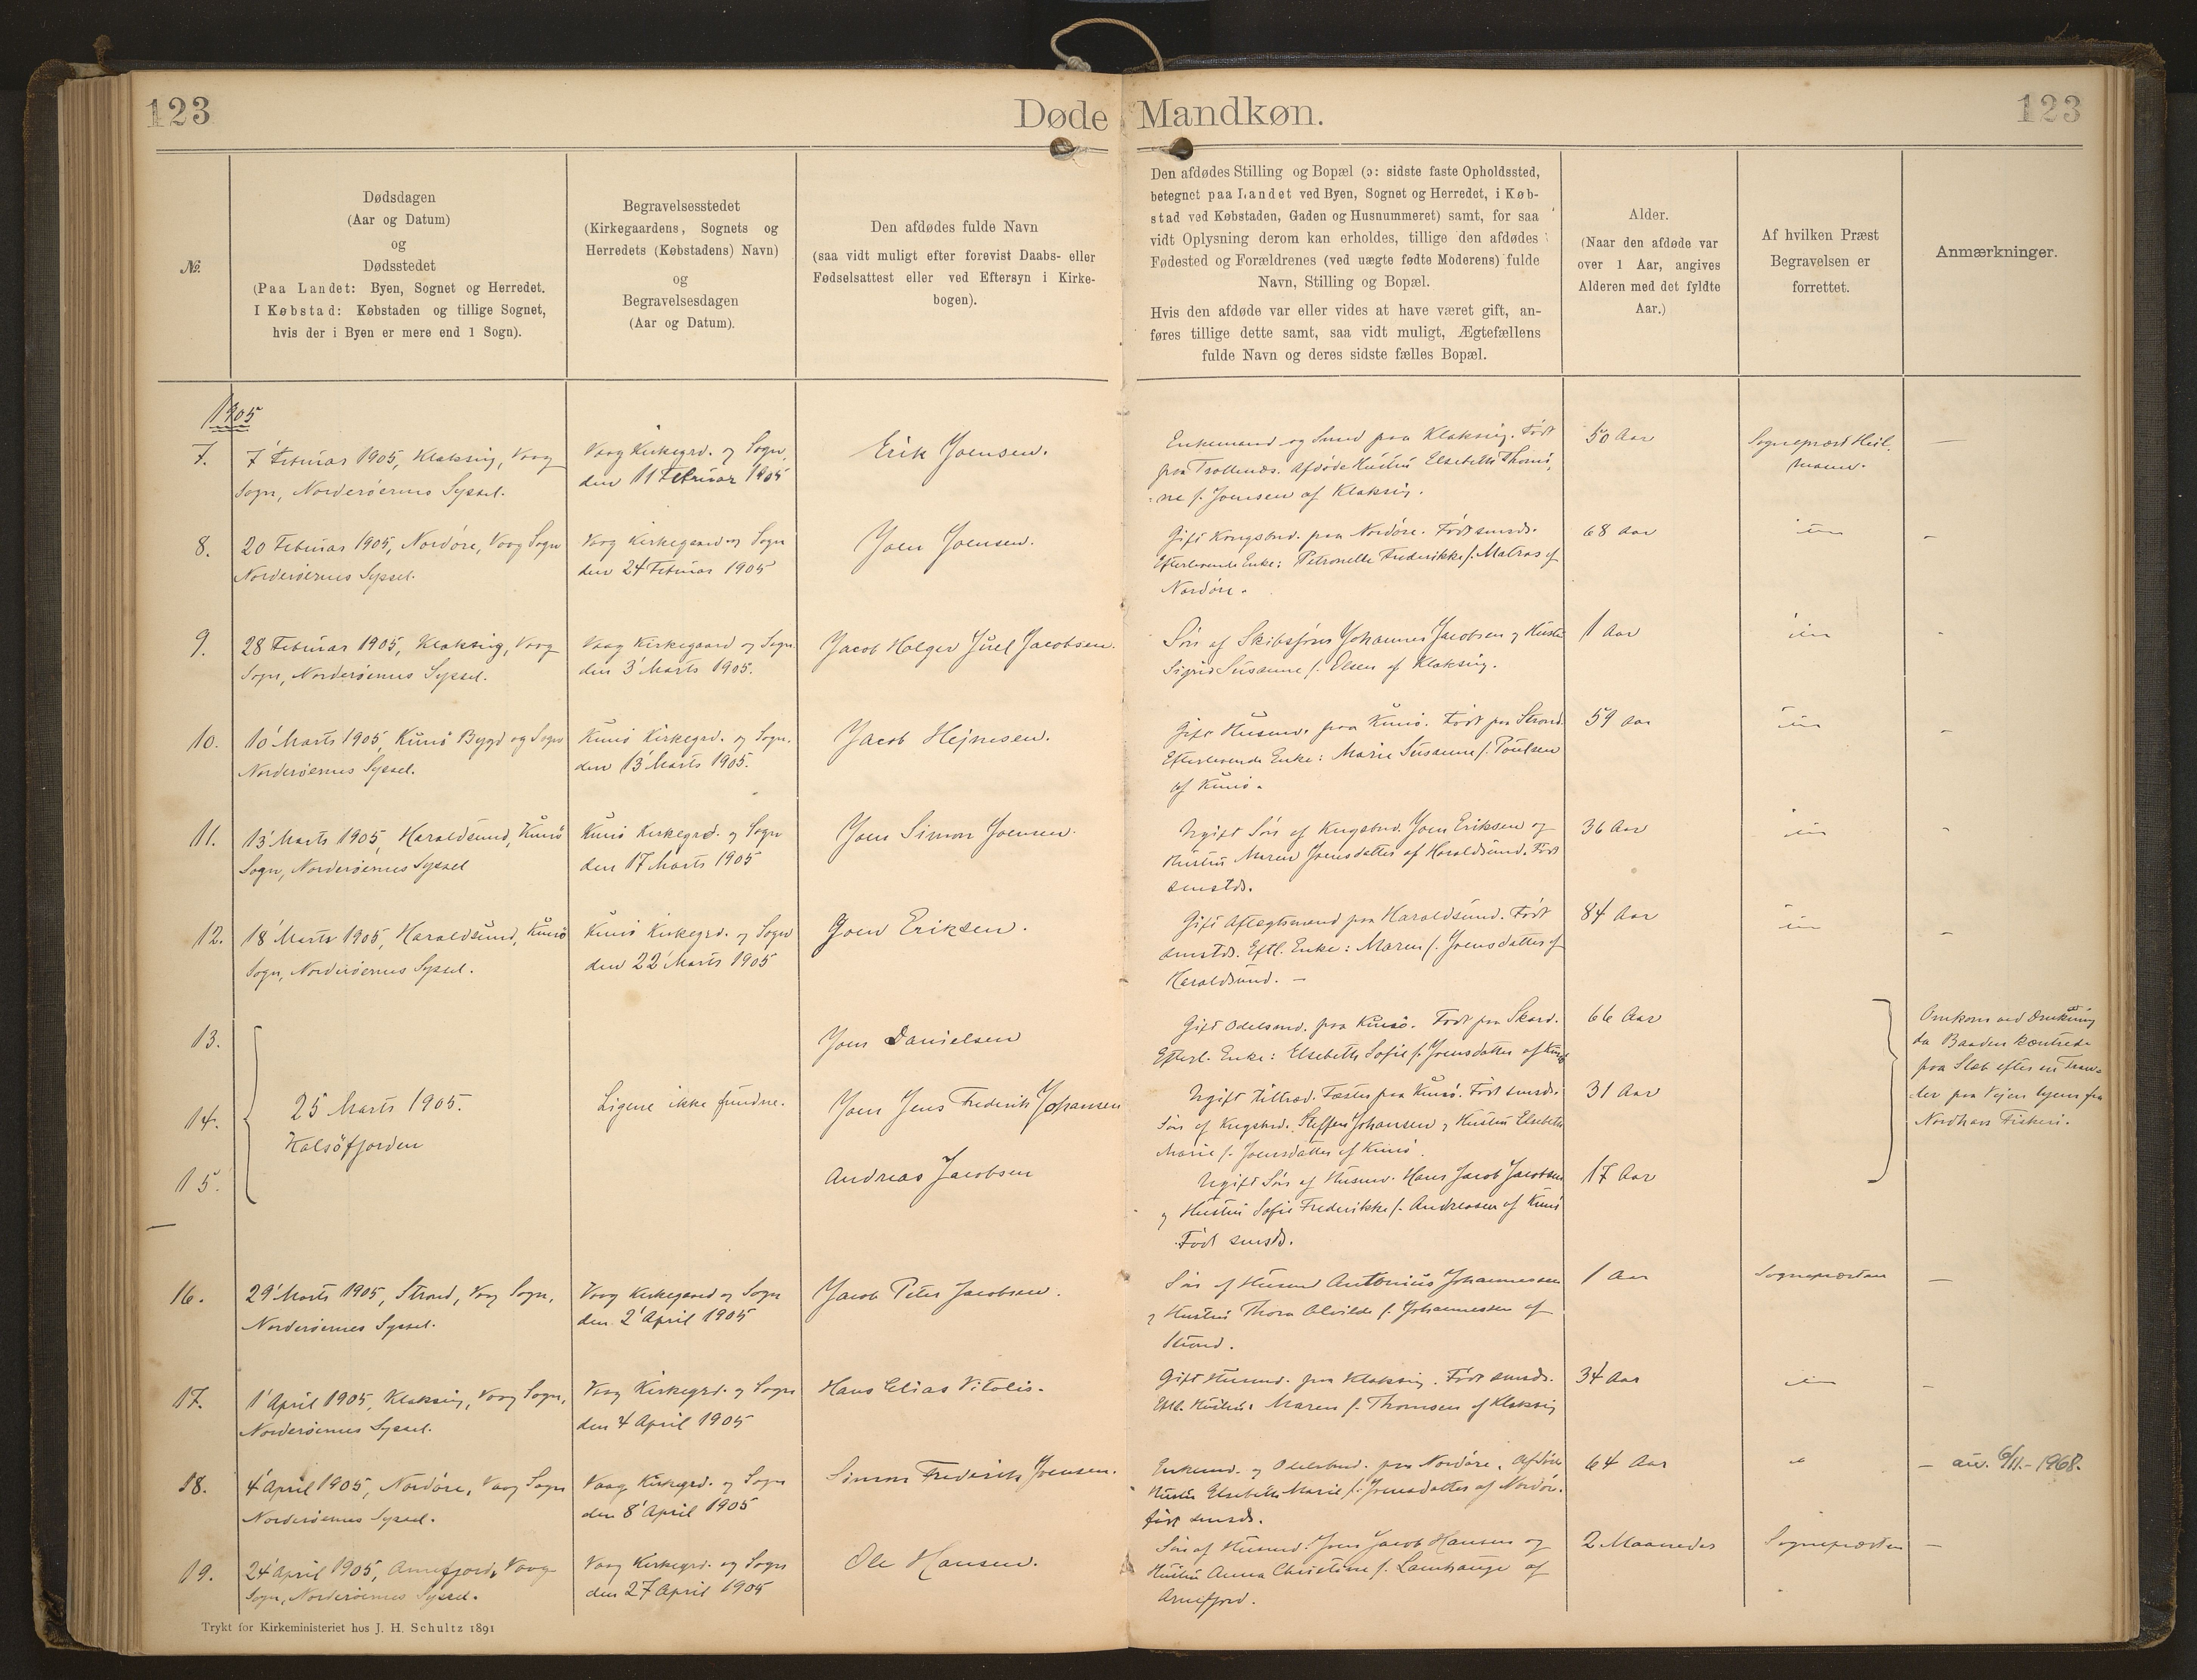 123
Døde
Mandkøn.
123
№.
Dødsdagen
(Aar og Datum)
og
Dødsstedet
(Paa Landet: Byen, Sognet og Herredet.
I Købstad: Købstaden og tillige Sognet,
hvis der i Byen er mere end 1 Sogn).
Begravelsesstedet
(Kirkegaardens, Sognets og
Herredets (Købstadens) Navn)
og
Begravelsesdagen
(Aar og Datum).
Den afdødes fulde Navn
(saa vidt muligt efter forevist Daabs- eller
Fødselsattest eller ved Eftersyn i Kirke-
bogen).
Den afdødes Stilling og Bopæl (ɔ: sidste faste Opholdssted,
betegnet paa Landet ved Byen, Sognet og Herredet, i Køb-
stad ved Købstaden, Gaden og Husnummeret) samt, for saa
vidt Oplysning derom kan erholdes, tillige den afdødes
Fødested og Forældrenes (ved uægte fødte Moderens) fulde
Navn, Stilling og Bopæl.
Hvis den afdøde var eller vides at have været gift, an-
føres tillige dette samt, saa vidt muligt, Ægtefællens
fulde Navn og deres sidste fælles Bopæl.
Alder.
(Naar den afdøde var
over 1 Aar, angives
Alderen med det fyldte
Aar.)
Af hvilken Præst
Begravelsen er
forrettet.
Anmærkninger.
1905
7.
7' Februar 1905, Klaksvig, Vaag
Sogn, Norderøernes Syssel.
Vaag Kirkegrd. og Sogn,
den 11 Februar 1905
Erik Joensen.
Enkemand og Smed paa Klaksvig. Født
paa Trollenæs. Afdøde Hustru Elsebeth Thomi-
ne f. Joensen af Klaksvig.
50 Aar
Sognepræst Heil-
mann.
—
8.
20 Februar 1905, Nordøre, Vaag Sogn
Norderøernes Syssel.
Vaag Kirkegaard og Sogn
den 24 Februar 1905
Joen Joensen.
Gift Kongsbnd. paa Nordøre. Født smsds.
Efterlevende Enke: Petronelle Frederikke f. Matras af
Nordøre.
68 Aar
–
9.
28 Februar 1905, Klaksvig, Vaag
Sogn, Norderøernes Syssel.
Vaag Kirkegaard og Sogn
den 3' Marts 1905.
Jacob Holger Juel Jacobsen.
Søn af Skibsfører Johannes Jacobsen og Hustru
Sigrid Susanne f. Olsen af Klaksvig.
1 Aar
-
10.
10' Marts 1905, Kunø Bygd og Sogn
Norderøernes Syssel.
Kunø Kirkegrd. og Sogn.
den 13' Marts 1905.
Jacob Hejnesen.
Gift Husmd. paa Kunø. Født paa Strond.
Efterlevende Enke: Marie Susanne f. Poulsen
af Kunø.
59 Aar
–
11.
13' Marts 1905, Haraldsund, Kunø
Sogn, Norderøernes Syssel
Kunø Kirkegrd. og Sogn
den 17 Marts 1905
Joen Simon Joensen.
Ugift Søn af Kngsbnd. Joen Eriksen og
Hustru Maren Joensdatter af Haraldsund. Født
smstds.
36 Aar
-
12.
18' Marts 1905, Haraldsund, Kunø
Sogn, Norderøernes Syssel.
Kunø Kirkegrd. og Sogn
den 22' Marts 1905
Joen Eriksen.
Gift Aftægtsmand paa Haraldsund. Født
smstds. Eftl. Enke: Maren f. Joensdatter af
Haraldsund. —
84 Aar
–
13.
Joen Danielsen
Gift Odelsmd. paa Kunø. Født paa Skard.
Efterl. Enke: Elsebeth Sofie f. Joensdatter af Kunø
66 Aar
14.
25 Marts 1905.
Kalsöfjorden
Ligene ikke fundne.
Joen Jens Frederik Johansen
Ugift Fæster paa Kunø. Født smsds.
Søn af Kngsbnd. Steffen Johansen og Hustru Elsebeth
Marie f. Joensdatter af Kunø.
31 Aar
Omkom ved Drukning
da Baaden kæntrede
paa Slæb efter en Traw-
ler paa Vejen hjem fra
Nordhavs Fiskeri.
15.
Andreas Jacobsen
Ugift Søn af Husmd. Hans Jacob Jacobsen
og Hustru Sofie Frederikke f. Andreasen af Kunø
Født smsds.
17 Aar
16.
29' Marts 1905, Strond, Vaag Sogn,
Norderøernes Syssel.
Vaag Kirkegaard og Sogn
den 2' April 1905
Jacob Peter Jacobsen.
Søn af Husmd Antonius Johannessen
og Hustru Thora Alvilde f. Johannessen af
Strond.
1 Aar
Sognepræsten
—
17.
1' April 1905, Klaksvig, Vaag Sogn,
Norderøernes Syssel.
Vaag Kirkegrd. og Sogn
den 4 April 1905
Hans Elias Vitalis.
Gift Husmd. paa Klaksvig. Født smsds.
Eftl. Hustru: Maren f. Thomsen af Klaksvig
34 Aar
–
18.
4' April 1905, Nordøre, Vaag Sogn
Norderøernes Syssel.
Vaag Kirkegrd. og Sogn
den 8' April 1905
Simon Frederik Joensen.
Enkemd. og Odelsbnd. paa Nordøre. Afdøde
Hustru Elsebeth Marie f. Joensdatter af Nordøre.
født smsds.
64 Aar
"
— 6/11-1968.
19.
24' April 1905, Arnefjord, Vaag
Sogn, Norderøernes Syssel.
Vaag Kirkegrd. og Sogn
den 27 April 1905
Ole Hansen.
Søn af Husmd. Joen Jacob Hansen og
Hustru Anna Christine f. Lamhauge af
Arnefjord.
2 Maaneder
Sognepræsten
—
Trykt for Kirkeministeriet hos J. H. Schultz 1891